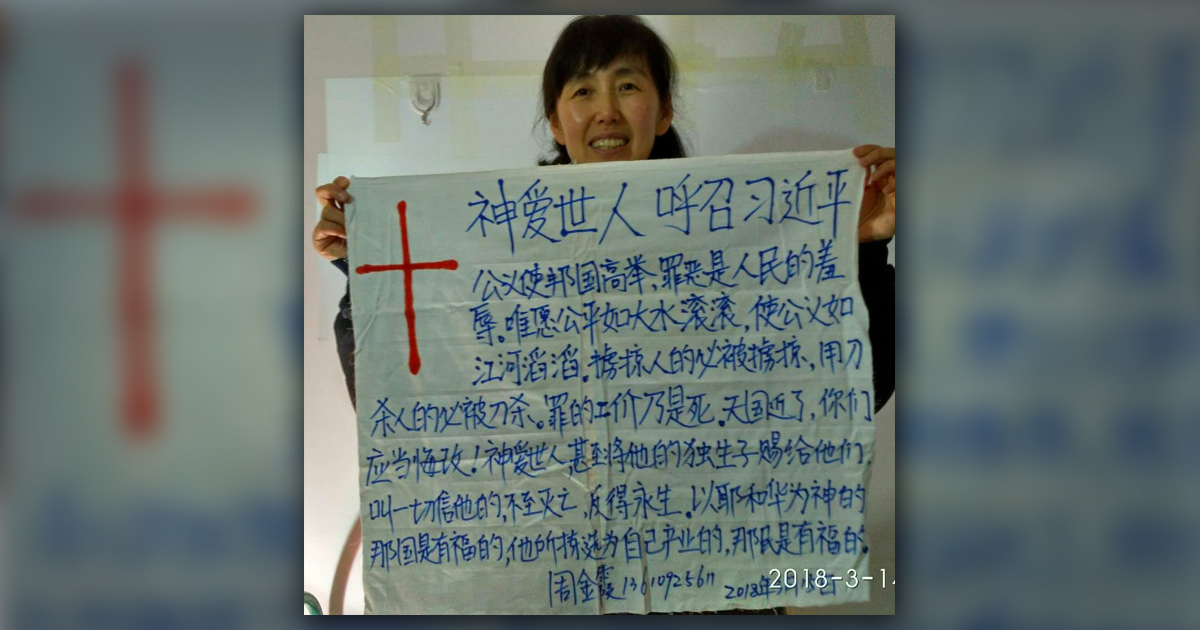 神爱世人 呼召习近平
公义使邦国高举、罪恶是人民的羞
辱。唯愿公平如大水滚滚,使公义如
江河滔滔。掳掠人的必被掳掠、用刀
杀人的必被刀杀。罪的工价乃是死。天国近了,你们
应当悔改!神爱世人甚至将他的独生子赐给他们,
叫一切信他的,不至灭亡,反得永生。以耶和华为神的
那国是有福的,他所拣选为自己产业的,那民是有福的。
周金霞13610925611 2018年3月15日
2018-3-14